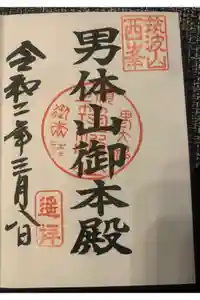 筑波山
西峯
男体山御本殿
遥拝
令和二年三月八日